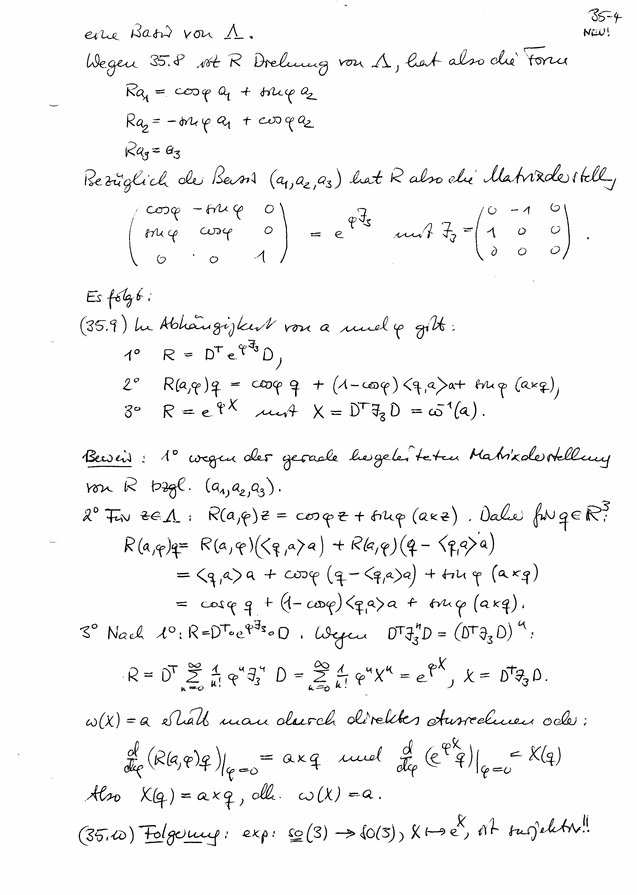 35-4
NEU!
eine Basis von Λ.
Wegen 35.8 ist R Drehung von Λ, hat also die Form
Ra₁ = cosφ a₁ + sinφ a₂
Ra₂ = -sinφ a₁ + cosφ a₂
Ra₃ = a₃
Bezüglich der Basis (a₁,a₂,a₃) hat R also die Matrixdarstellg
( cosφ -sinφ 0 ) ( 0 -1 0 )
( sinφ cosφ 0 ) = e^{φJ₃} mit J₃ = ( 1 0 0 ) .
( 0 0 1 ) ( 0 0 0 )
Es folgt:
(35.9) In Abhängigkeit von a und φ gilt:
1° R = Dᵀ e^{φJ₃} D,
2° R(a,φ)q = cosφ q + (1-cosφ)<q,a>a + sinφ (a×q),
3° R = e^{φX} mit X = DᵀJ₃D = ω⁻¹(a).
Beweis: 1° wegen der gerade hergeleiteten Matrixdarstellung
von R bzgl. (a₁,a₂,a₃).
2° Für z∈Λ: R(a,φ)z = cosφ z + sinφ (a×z). Daher für q∈ℝ³:
R(a,φ)q = R(a,φ)(<q,a>a) + R(a,φ)(q - <q,a>a)
= <q,a>a + cosφ (q-<q,a>a) + sinφ (a×q)
= cosφ q + (1-cosφ)<q,a>a + sinφ (a×q).
3° Nach 1°: R=Dᵀ∘e^{φJ₃}∘D. Wegen DᵀJ₃ⁿD = (DᵀJ₃D)ⁿ:
R = Dᵀ ∑_{n=0}^∞ 1/n! φⁿJ₃ⁿ D = ∑_{n=0}^∞ 1/n! φⁿXⁿ = e^{φX}, X = DᵀJ₃D.
ω(X) = a erhält man durch direktes Ausrechnen oder:
d/dφ (R(a,φ)q)|_{φ=0} = a×q und d/dφ (e^{φX}q)|_{φ=0} = X(q)
Also X(q) = a×q, dh. ω(X) = a.
(35.10) Folgerung: exp: so(3) → SO(3), X ↦ e^X, ist surjektiv!!